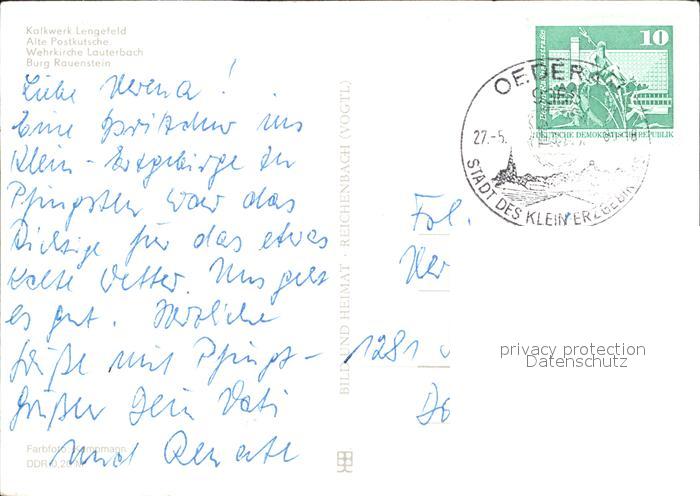 Kalkwerk Lengefeld
Alte Postkutsche
Wehrkirche Lauterbach
Burg Rauenstein
Liebe Verena!
Eine Spritztour ins
Klein-Erzgebirge zu
Pfingsten war das
Richtige für das etwas
kalte Wetter. Uns geht
es gut. Herzliche
Grüße mit Pfingst-
grüßen Dein Vati
und Renate
Farbfoto:
DDR 0,20 M
BILD UND HEIMAT · REICHENBACH (VOGTL)
10
DEUTSCHE DEMOKRATISCHE REPUBLIK
OEDERAN
27.-5.
STADT DES KLEIN-ERZGEBIRGES
Ver
1281
privacy protection
Datenschutz